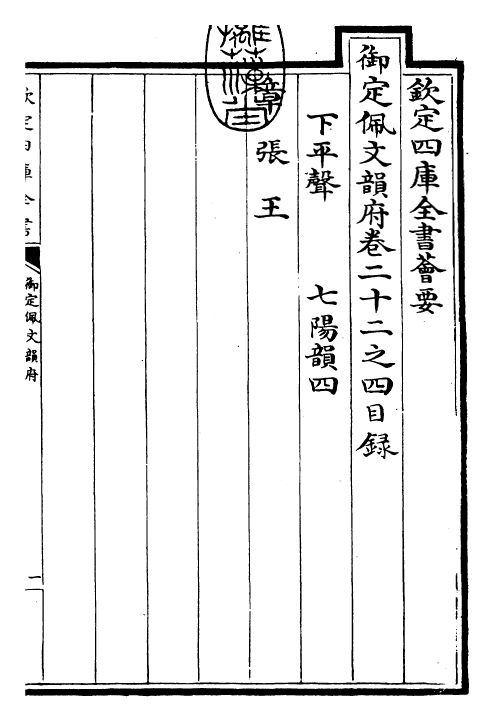 欽定四庫全書薈要
御定佩文韻府卷二十二之四目録
下平聲　七陽韻四
章　張　王
欽定四庫全書
御定佩文韻府
一